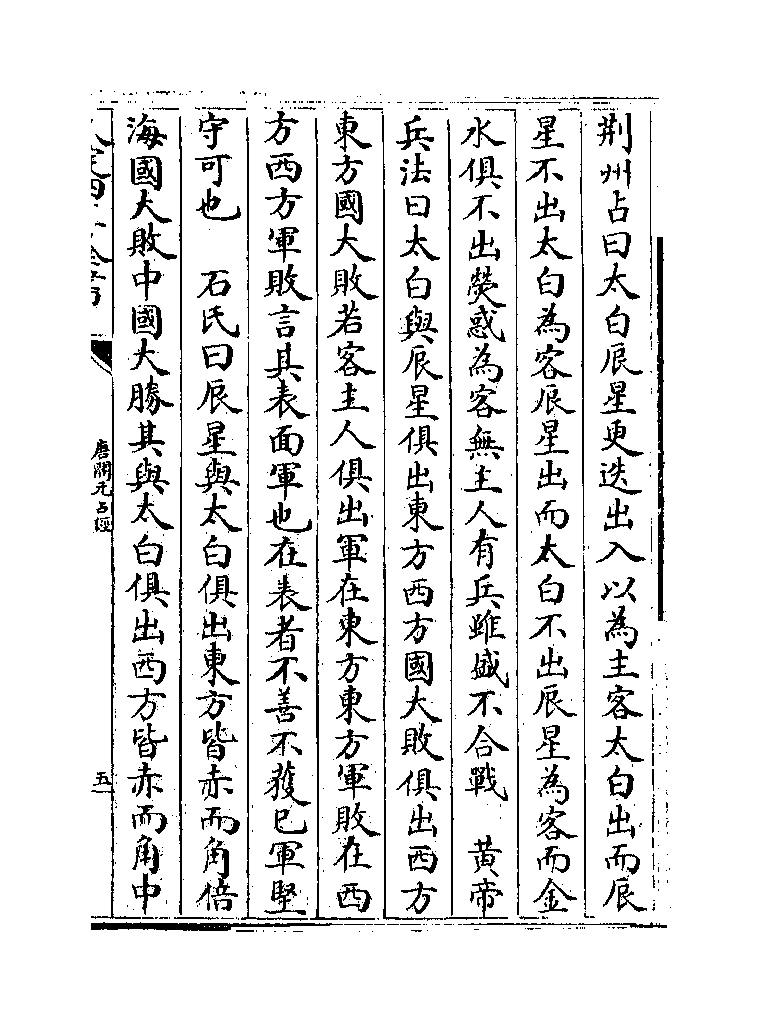 荆州占曰太白辰星更迭出入以為主客太白出而辰
星不出太白為客辰星出而太白不出辰星為客而金
水俱不出熒惑為客無主人有兵雖盛不合戰　黄帝
兵法曰太白與辰星俱出東方西方國大敗俱出西方
東方國大敗若客主人俱出軍在東方東方軍敗在西
方西方軍敗言其表面軍也在表者不善不獲已軍堅
守可也　石氏曰辰星與太白俱出東方皆赤而角倍
海國大敗中國大勝其與太白俱出西方皆赤而角中
唐開元占經
五